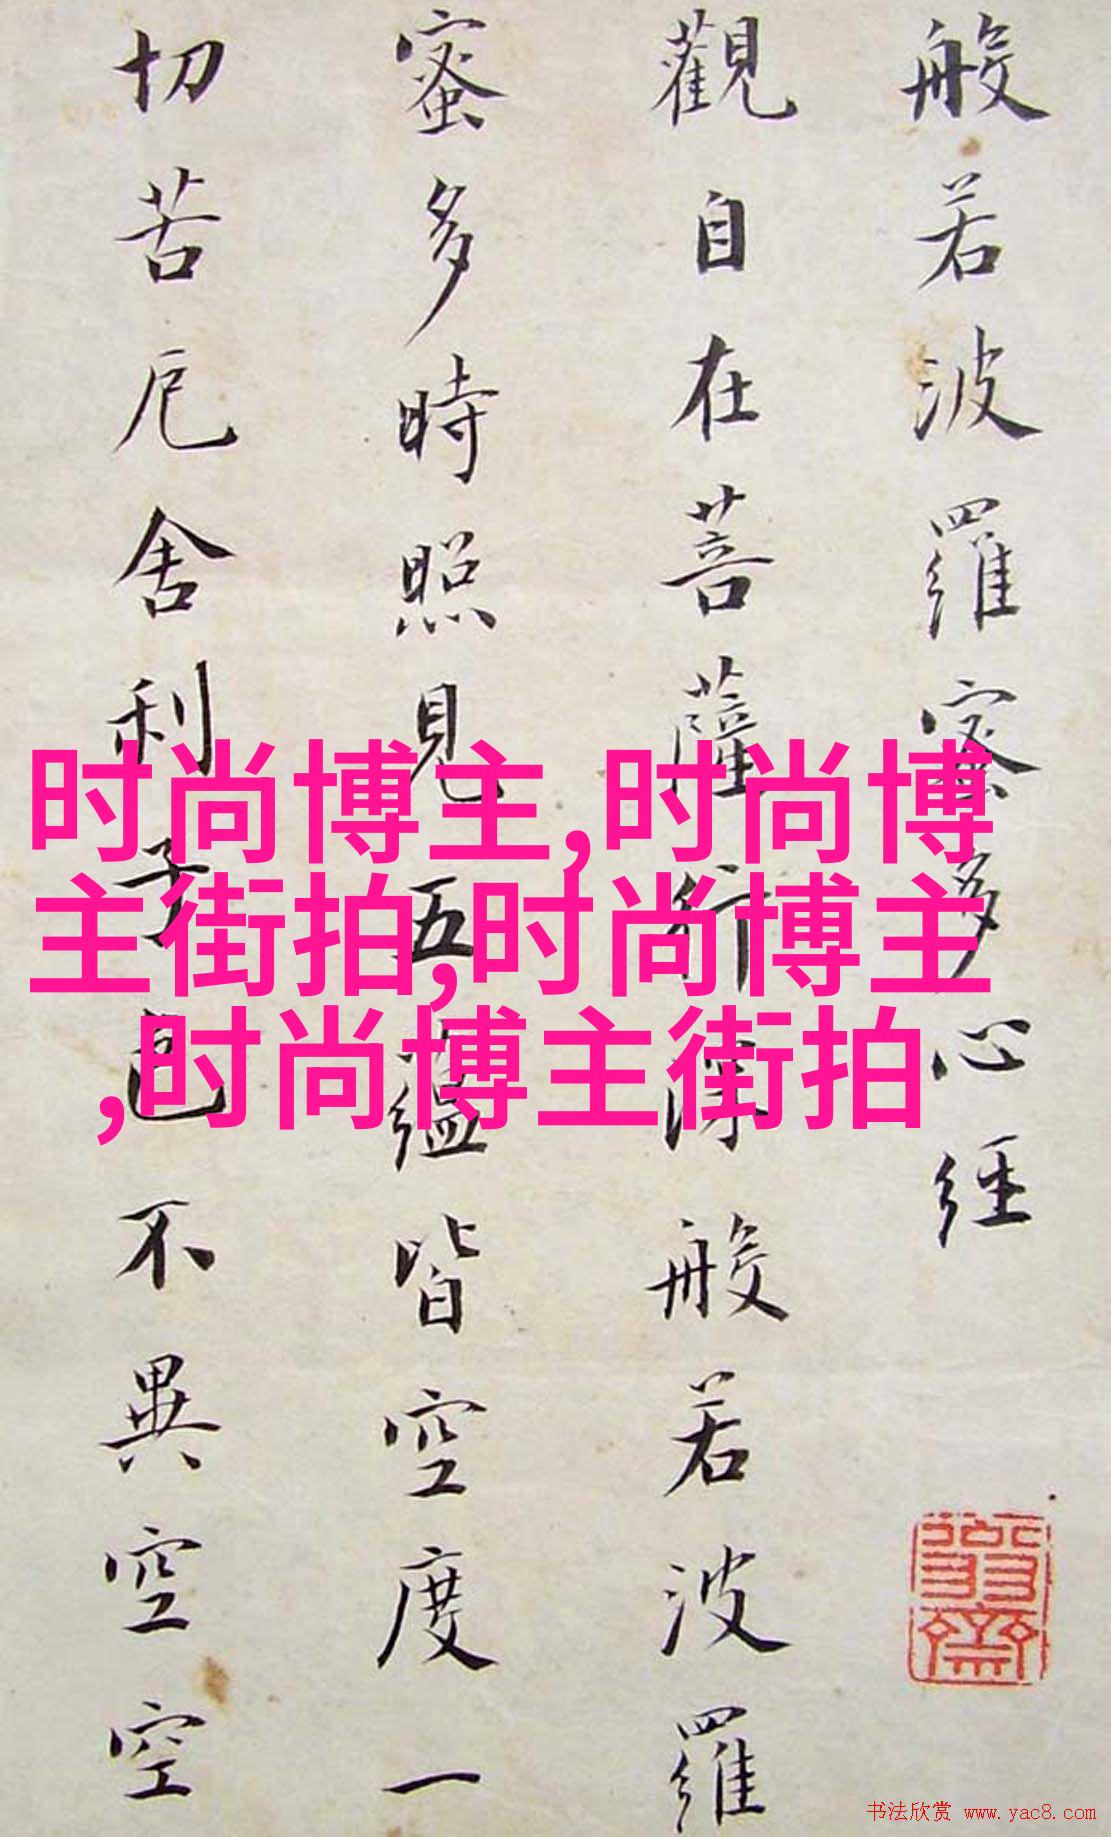 般若波羅蜜多心經
觀自在菩薩行深般若波羅
蜜多時照見五蘊皆空度一
切苦厄舍利子色不異空空
时尚博主,时尚博
主街拍,时尚博主
,时尚博主街拍
书法欣赏 www.yac8.com